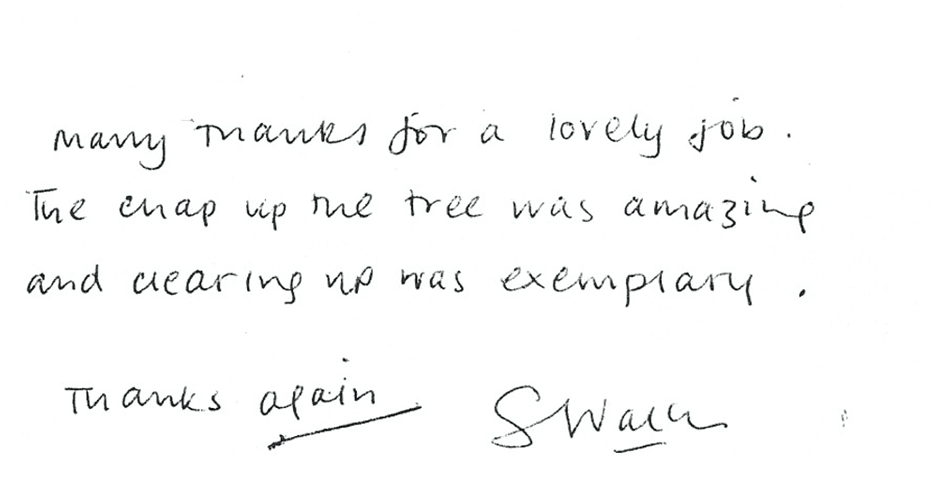 Many Thanks for a lovely job.
The chap up the tree was amazing
and clearing up was exemplary.
Thanks again